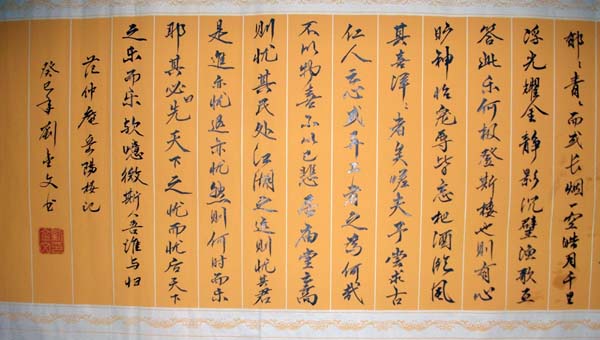 郁々青々而或长烟一空皓月千里
浮光耀金静影沉璧渔歌互
答此乐何极登斯楼也则有心
旷神怡宠辱皆忘把酒临风
其喜洋々者矣嗟夫予尝求古
仁人之心或异二者之为何哉
不以物喜不以己悲居庙堂之高
则忧其民处江湖之远则忧其君
是进亦忧退亦忧然则何时而乐
耶其必曰先天下之忧而忧后天下
之乐而乐欤噫微斯人吾谁与归
范仲庵岳阳楼记
癸巳年劉文书